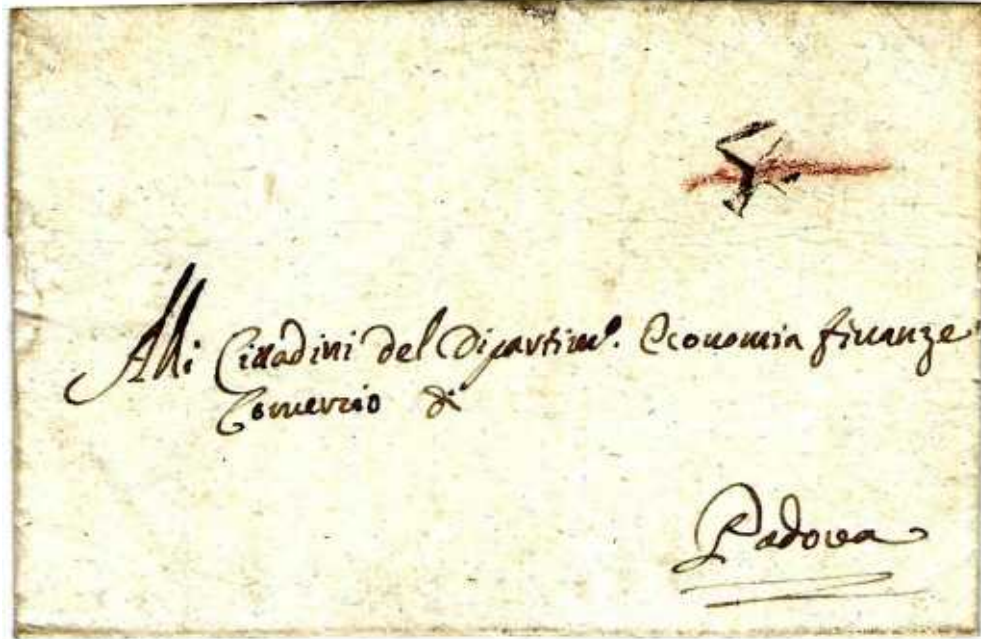 Alli Cittadini del Dipartimo. Economia finanze
Comercio di
Padova